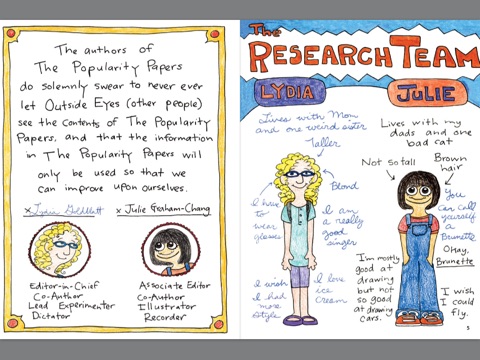 The authors of
The Popularity Papers
do solemnly swear to never ever
let Outside Eyes (other people)
see the contents of The Popularity
Papers, and that the information
in The Popularity Papers will
only be used so that we
can improve upon ourselves.
x Lydia Goldblatt
x Julie Graham-Chang
Editor-in-Chief
Co-Author
Lead Experimenter
Dictator
Associate Editor
Co-Author
Illustrator
Recorder
The
RESEARCH TEAM
LYDIA
JULIE
Lives with Mom
and one weird sister
Taller
Blond
I have to
wear
glasses
I am
a really
good
singer
I wish
I had
more
style
I love
ice
cream
Lives with my
dads and one
bad cat
Not so tall
Brown
hair
You
can call
yourself
a
Brunette
Okay,
Brunette
I'm mostly
good at
drawing
but not
so good
at drawing
cars.
I wish
I could
fly.
5